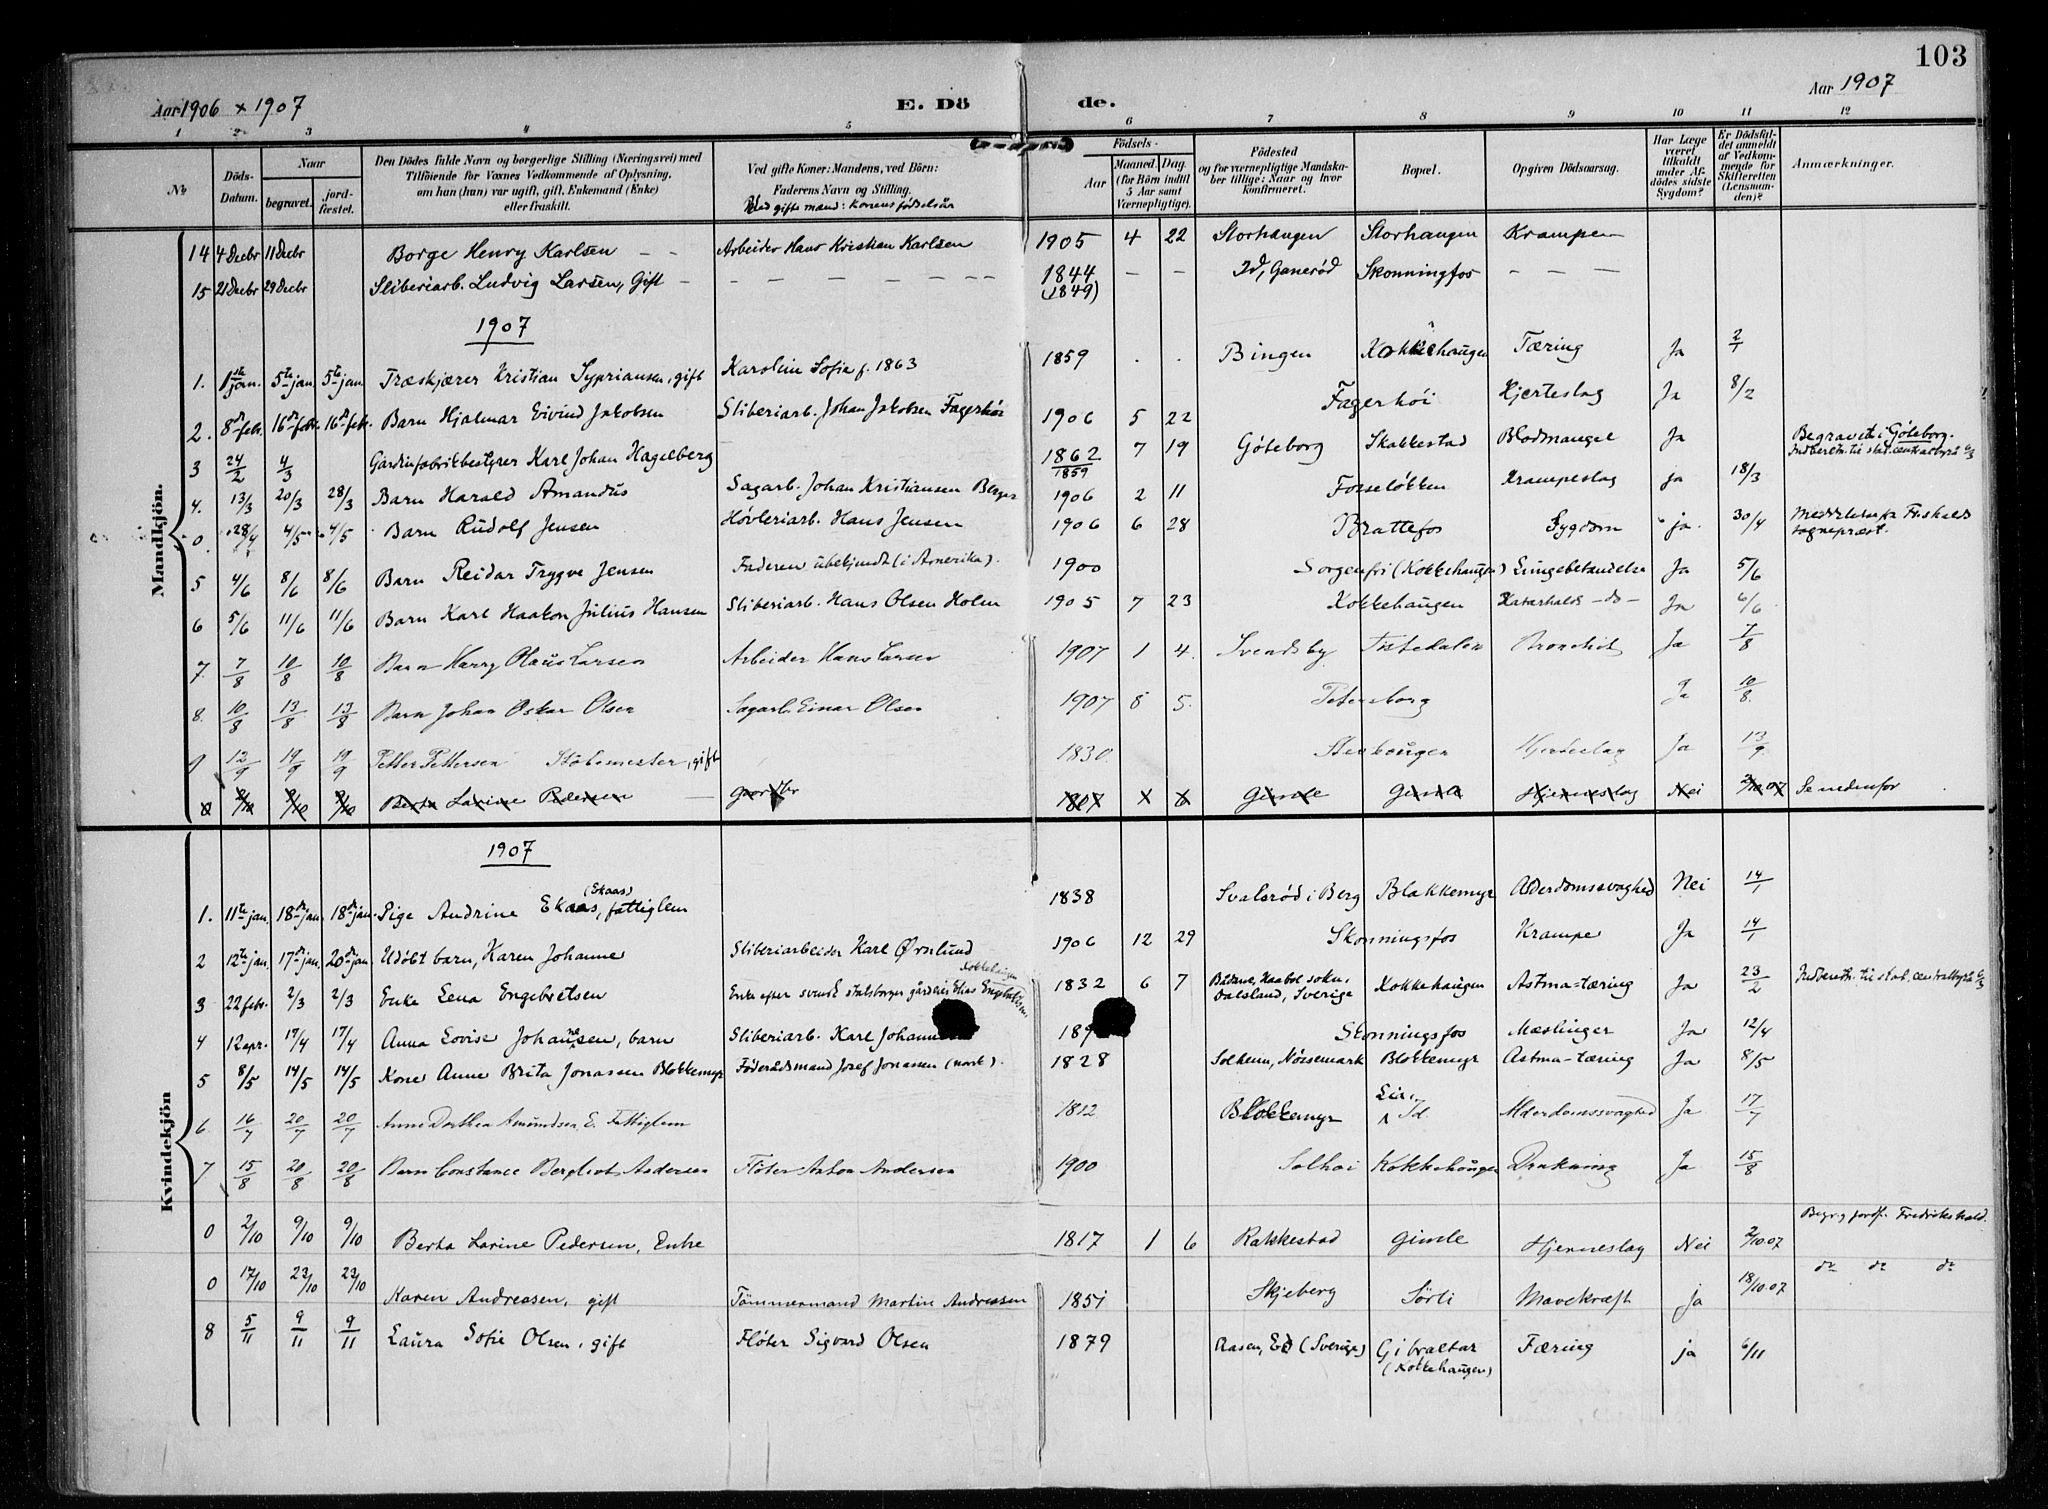 103
Aar 1906 x 1907 E. Dö de. Aar 1907
1 2 3 4 5 6 7 8 9 10 11 12
No Döds-Datum. Naar begravet. jordfæstet. Den Dödes fulde Navn og borgerlige Stilling (Næringsvei) med Tilföiende for Voxnes Vedkommende af Oplysning, om han (hun) var ugift, gift, Enkemand (Enke) eller fraskilt. Ved gifte Koner: Mandens, ved Börn: Faderens Navn og Stilling. Ved gifte mand: Konens fødselsår Födsels- Aar Maaned. Dag. (for Börn indtil 5 Aar samt Værnepligtige). Födested og for værnepligtige Mandskaber tillige: Naar og hvor konfirmeret. Bopæl. Opgiven Dödsaarsag. Har Læge været tilkaldt under Afdödes sidste Sygdom? Er Dödsfaldet anmeldt af Vedkommende for Skifteretten (Lensmanden)? Anmærkninger.
Mandkjön.
14 4 Decbr 11 Decbr Borge Henry Karlsen – – Arbeider Hans Kristian Karlsen 1905 4 22 Storhaugen Storhaugen Kramper
15 21 Decbr 29 Decbr Sliberiarb. Ludvig Larsen, Gift – – – – – – – – 1844 (1849) – – Id, Ganerød Skonningfos – – –
1907
1. 1ste jan. 5te jan. 5te jan. Træskjærer Kristian Sypriansen, gift Karoline Sofie f. 1863 1859 . . Bingen Kokkehaugen Tæring Ja 2/1
2. 8de febr. 16de febr. 16de febr. Barn Hjalmar Eivind Jakobsen Sliberiarb. Johan Jakobsen Fagerhøi 1906 5 22 Fagerhöi Hjerteslag Ja 8/2
3 24/2 4/3 Gardinfabrikbestyrer Karl Johan Hagelberg 1862 1859 7 19 Göteborg Skakkestad Blodmangel Ja Begravet i Göteborg. Indberetn. til stat. centralbyrå 6/3
4. 13/3 20/3 28/3 Barn Harald Amandus Sagarb. Johan Kristiansen Berger 1906 2 11 Fosseløkken Krampeslag ja 18/3
0. 28/4 4/5 4/5 Barn Rudolf Jensen Høvleriarb. Hans Jensen 1906 6 28 Brattefos Sygdom ja. 30/4 sognepræst.
5 4/6 8/6 8/6 Barn Reidar Trygve Jensen Faderen ubekjendt (i Amerika). 1900 Sorgenfri (Kokkehaugen) Lungebetændelse Ja 5/6
6 5/6 11/6 11/6 Barn Karl Haakon Julius Hansen Sliberiarb. Hans Olsen Holm 1905 7 23 Kokkehaugen Katarhalsk –do– Ja 6/6
7. 7/8 10/8 10/8 Barn Harry Olaus Larsen Arbeider Hans Larsen 1907 1 4. Svendsby Tistedalen Bronchit Ja 7/8
8. 10/8 13/8 13/8 Barn Johan Oskar Olsen Sagarb. Einar Olsen 1907 8 5. Petersborg Ja 10/8.
9 12/9 19/9 19/9 Petter Pettersen Støbemester, gift 1830. Stenhaugen Hjerteslag Ja 13/9.
0 2/10 9/10 9/10 Berta Larine Pedersen 1807 Gimle Gimle Hjerneslag Nei 2/10.07 Se nedenfor
Kvindekjön
1907
(Ekaas)
1. 11te jan. 18de jan. 18de jan. Pige Andrine Ekaas, fattiglem 1838 Svalerød i Berg Blakkemyr Alderdomssvaghed Nei 14/1
2 12te jan. 17de jan. 20de jan. Udöbt barn, Karen Johanne Sliberiarbeider Karl Ørnlund 1906 12 29 Skonningsfos Krampe Ja 14/1
3 22 febr. 2/3 2/3 Enke Lena Engebretsen Enke efter svensk statsborger gårdeier Elias Engebretsen Kokkehaugen 1832 6 7 Haabol sokn, Dalsland, Sverige Kokkehaugen Astma=tæring Ja 23/2 Indberetn. til stat. centralbyrå 6/3
4 12 apr. 17/4 17/4 Anna Lovise Johannsen, barn Sliberiarb. Karl Johann 189 Skonningsfos Mæslinger Ja 12/4
5 8/5 14/5 14/5 Kone Anne Brita Jonassen Blokkemyr Föderådsmand Josef Jonassen (norsk). 1828 Solheim, Nössemark Blokkemyr Astma–tæring Ja 8/5
6 16/7 20/7 20/7 Anne Dorthea Amundsen E. Fattiglem 1812 Blokkemyr Lie, Id Alderdomssvaghed Ja 17/7
7 15/8 20/8 20/8 Barn Constance Bergliot Andersen Flöter Anton Andersen 1900 Solhöi Kokkehaugen Drukning Ja 15/8
0 2/10 9/10 9/10 Berta Larine Pedersen, Enke 1817 1 6 Rakkestad Gimle Hjerneslag Nei 2/10.07 Begr. og jordf. Fredrikshald.
0 17/10 23/10 23/10 Karen Andreasen, gift Tömmermand Martin Andreasen 1851 Skjeberg Sørli Mavekræft ja 18/10.07 do do do
8 5/11 9/11 9/11 Laura Sofie Olsen, gift Flöter Sigvard Olsen 1879 Aasen, Ed (Sverige) Gibraltar (Kokkehaugen) Tæring ja 6/11